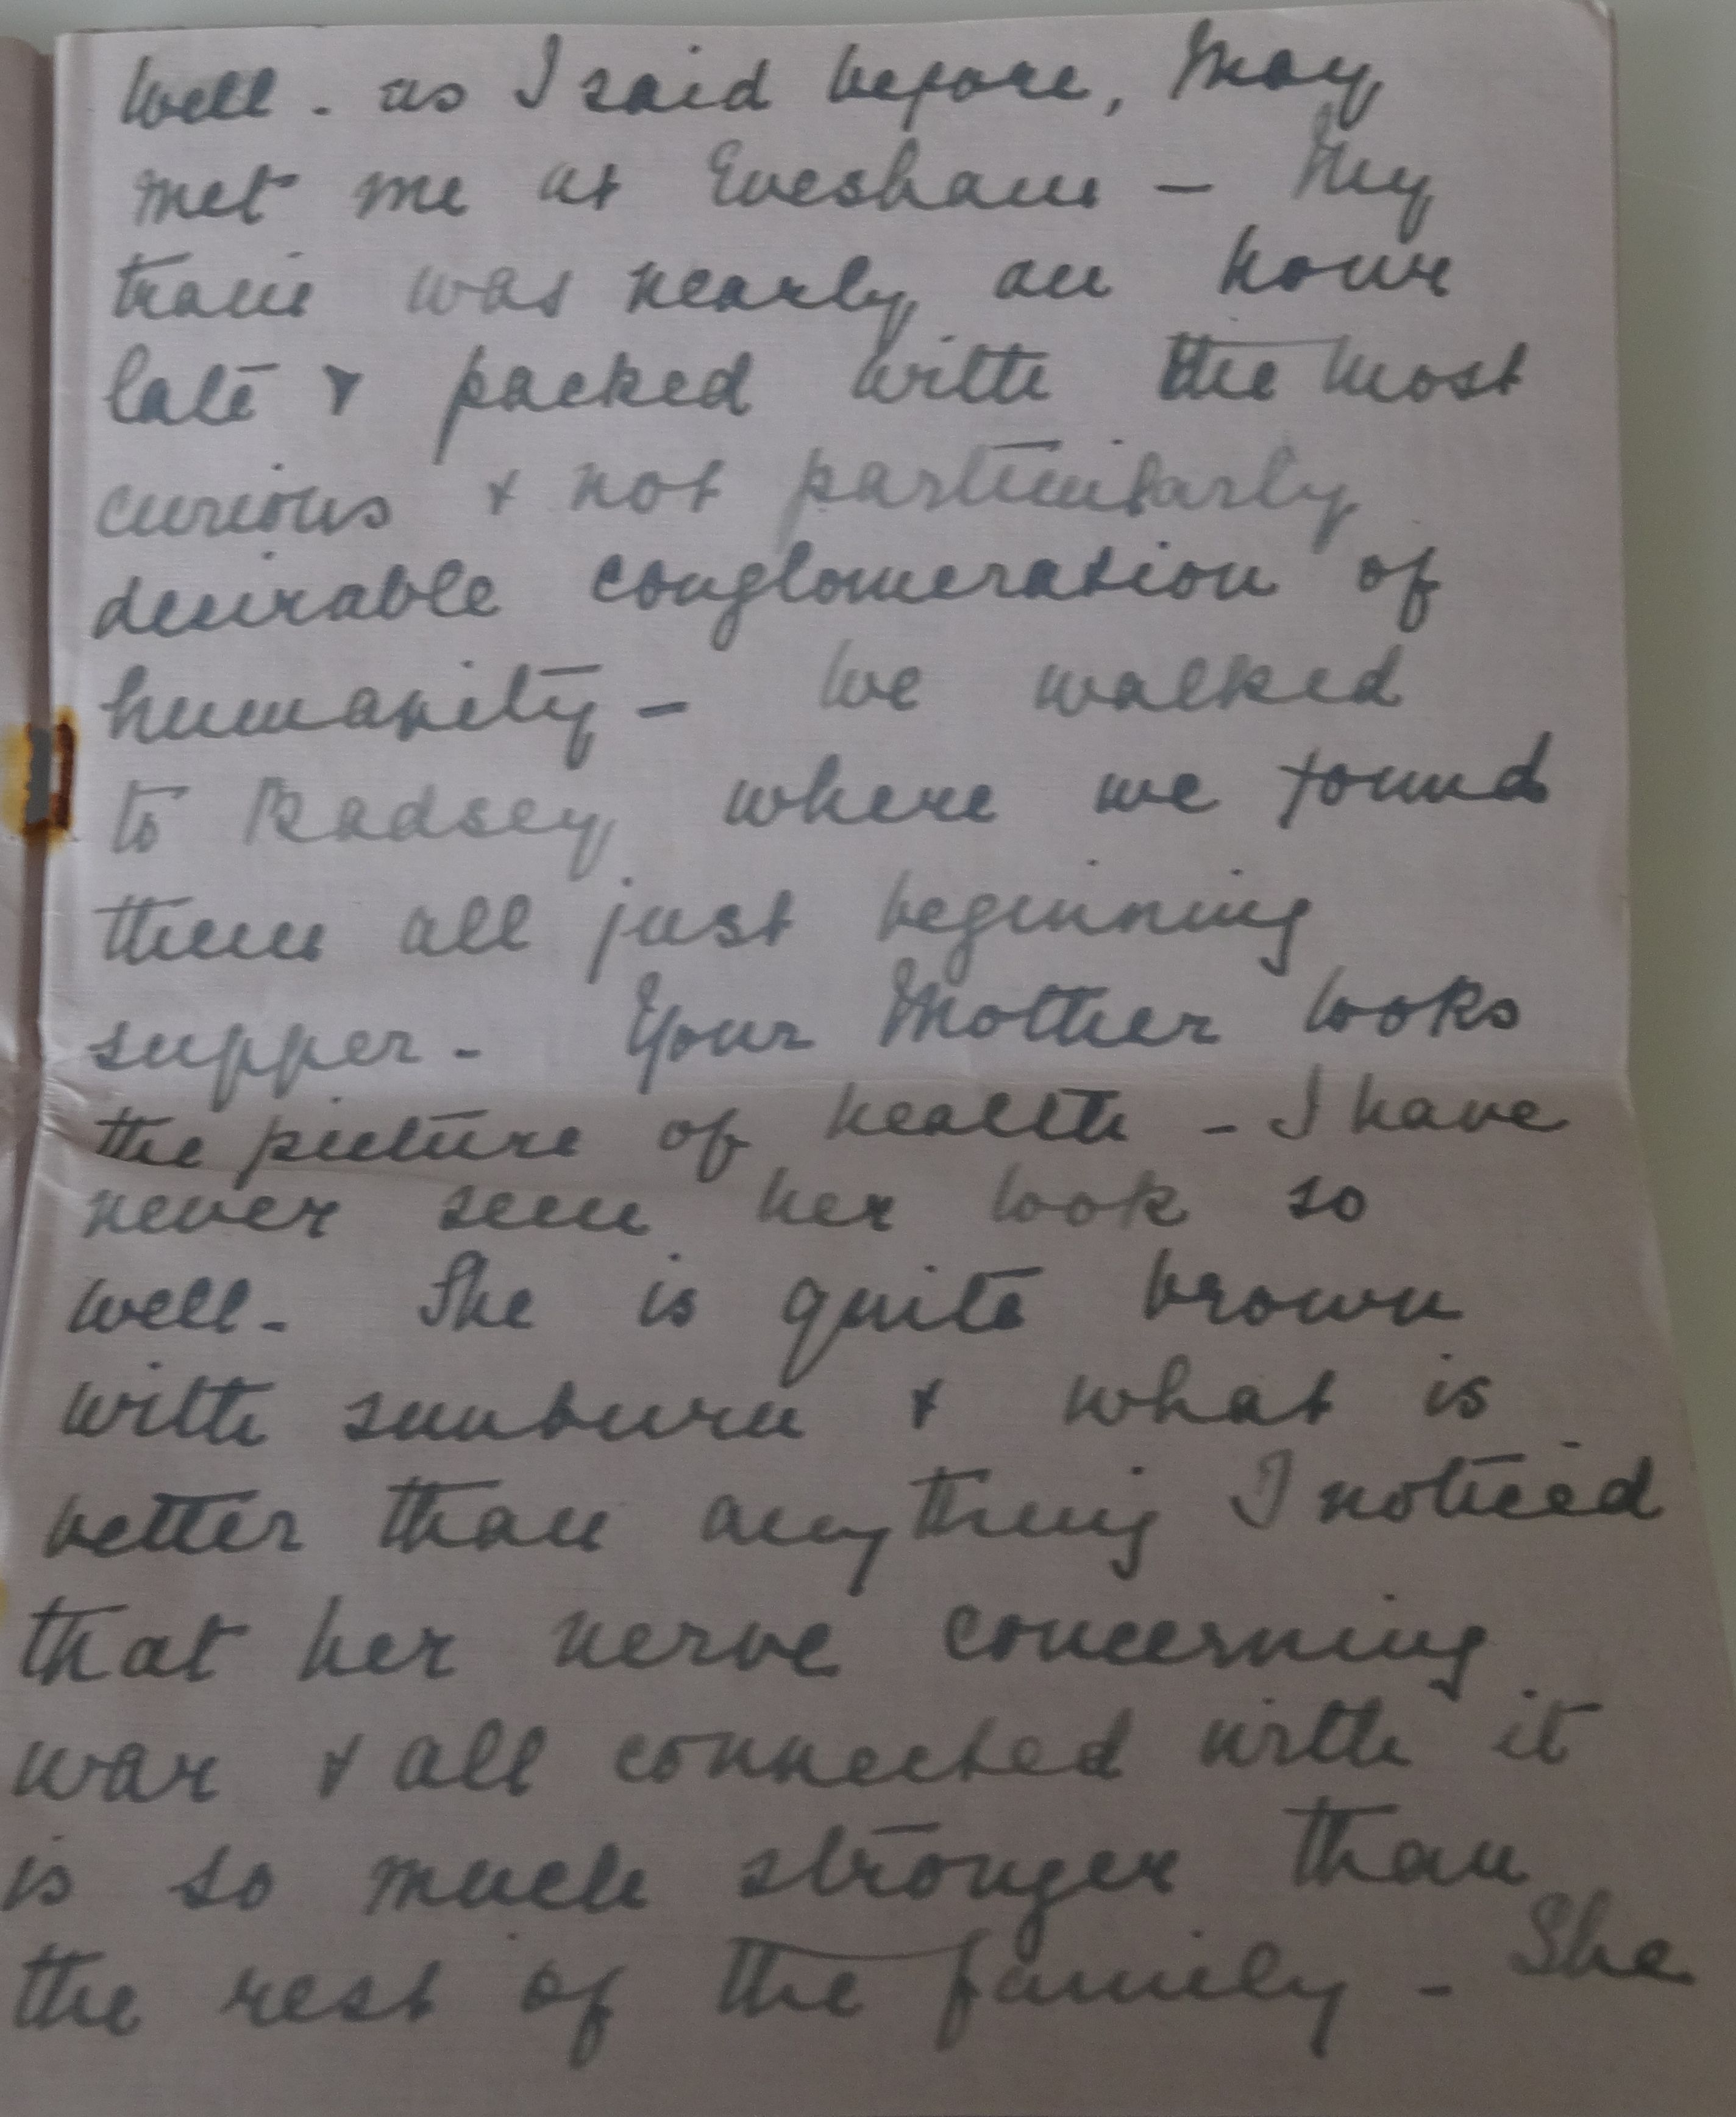 Well. as I said before, May
met me at Evesham - My
train was nearly an hour
late & packed with the most
curious & not particularly
desirable conglomeration of
humanity - We walked
to Badsey where we found
them all just beginning
supper - Your Mother looks
the picture of health - I have
never seen her look so
well - She is quite brown
with sunburn & what is
better than anything I noticed
that her nerve concerning
war & all connected with it
is so much stronger than
the rest of the family - She